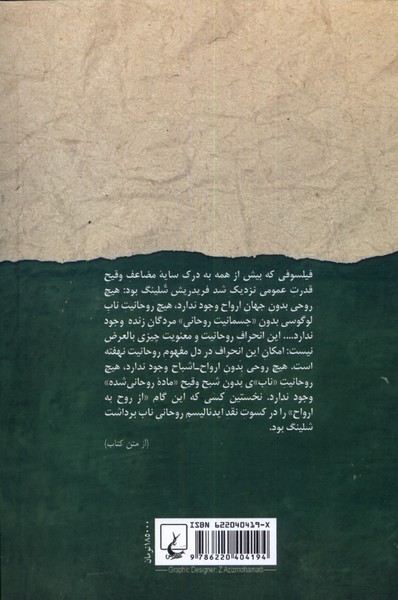 فیلسوفی که بیش از همه به درک سایهٔ مضاعف وقیح
قدرت عمومی نزدیک شد فریدریش شلینگ بود: هیچ
روحی بدون جهان ارواح وجود ندارد، هیچ روحانیت ناب
لوگوسی بدون «جسمانیت روحانی» مردگان زنده وجود
ندارد.... این انحراف روحانیت و معنویت چیزی بالعرض
نیست: امکان این انحراف در دل مفهوم روحانیت نهفته
است. هیچ روحی بدون ارواح-اشباح وجود ندارد، هیچ
روحانیت «ناب»ی بدون شبح وقیح «مادهٔ روحانی‌شده»
وجود ندارد. نخستین کسی که این گام «از روح به
ارواح» را در کسوتِ نقد ایدئالیسم روحانی ناب برداشت
شلینگ بود.
(از متن کتاب)
ISBN 622040419-X
9 786220 404194
۱۸۵۰۰۰ تومان
ققنوس
Graphic Designer: Z.Azizmohamadi